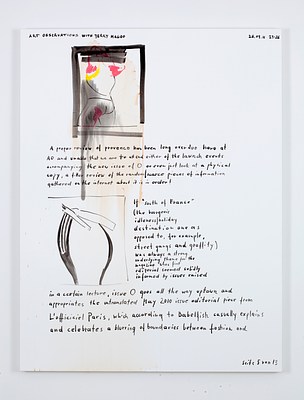 ART OBSERVATIONS WITH JERRY MAGOO
A proper review of provence has been long overdue here at
AO and whilst that we are to attend either of the launch events
accompanying the new issue of O or even just look at a physical
copy, a fiber review of the random pieces of information
gathered on the internet about it is in order!
If "South of France"
(the bourgeois
idleness/holiday
destination one as
opposed to, for example,
street gangs and graffiti)
was always a strong
underlying theme for the
magazine, this first
editorial seemed solidly
informed by issues raised
in a certain lecture, issue O goes all the way uptown and
appropriates the untranslated May 2010 issue editorial piece from
L'officiel Paris, which according to Babelfish casually explains
and celebrates a blurring of boundaries between fashion and
Seite 5 von 13